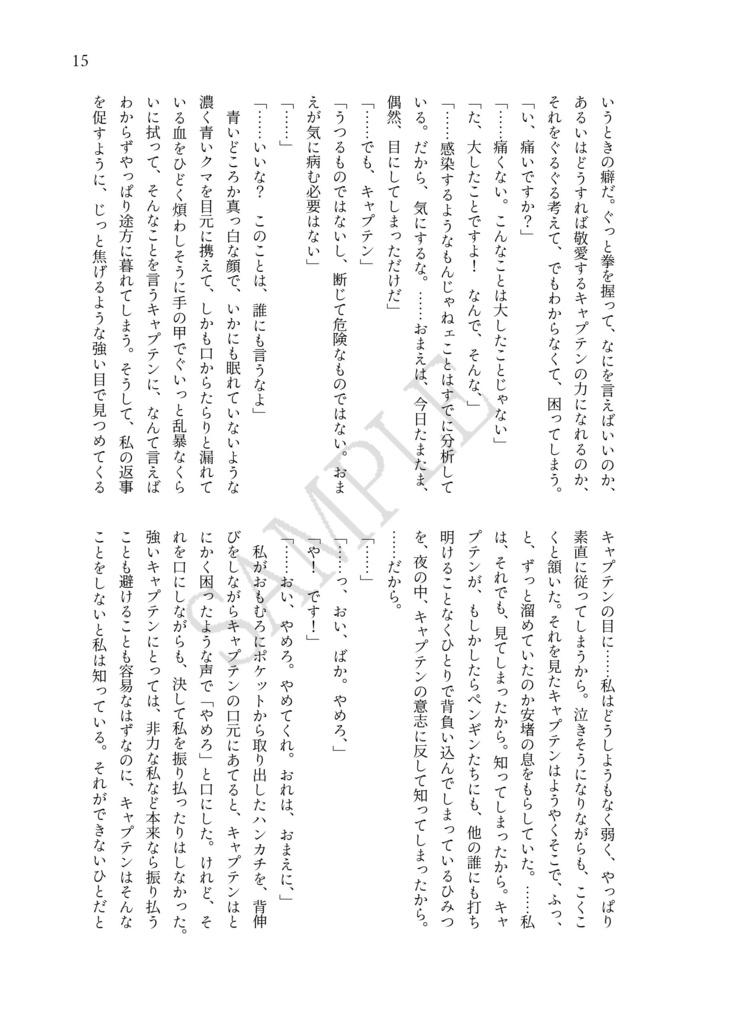 15
いうときの癖だ。ぐっと拳を握って、なにを言えばいいのか、
あるいはどうすれば敬愛するキャプテンの力になれるのか、
それをぐるぐる考えて、でもわからなくて、困ってしまう。
「い、痛いですか？」
「……痛くない。こんなことは大したことじゃない」
「た、大したことですよ！　なんで、そんな、」
「……感染するようなもんじゃねェことはすでに分析して
いる。だから、気にするな。……おまえは、今日たまたま、
偶然、目にしてしまっただけだ」
「……でも、キャプテン」
「うつるものではないし、断じて危険なものではない。おま
えが気に病む必要はない」
「……」
「……いいな？　このことは、誰にも言うなよ」
青いどころか真っ白な顔で、いかにも眠れていないような
濃く青いクマを目元に携えて、しかも口からたらりと漏れて
いる血をひどく煩わしそうに手の甲でぐいっと乱暴なくら
いに拭って、そんなことを言うキャプテンに、なんて言えば
わからずやっぱり途方に暮れてしまう。そうして、私の返事
を促すように、じっと焦げるような強い目で見つめてくる
キャプテンの目に……私はどうしようもなく弱く、やっぱり
素直に従ってしまうから。泣きそうになりながらも、こくこ
くと頷いた。それを見たキャプテンはようやくそこで、ふっ、
と、ずっと溜めていたのか安堵の息をもらしていた。……私
は、それでも、見てしまったから。知ってしまったから。キャ
プテンが、もしかしたらペンギンたちにも、他の誰にも打ち
明けることなくひとりで背負い込んでしまっているひみつ
を、夜の中、キャプテンの意志に反して知ってしまったから。
……だから。
「……」
「……っ、おい、ばか。やめろ、」
「や！　です！」
「……おい、やめろ。やめてくれ。おれは、おまえに、」
私がおもむろにポケットから取り出したハンカチを、背伸
びをしながらキャプテンの口元にあてると、キャプテンはと
にかく困ったような声で「やめろ」と口にした。けれど、そ
れを口にしながらも、決して私を振り払ったりはしなかった。
強いキャプテンにとっては、非力な私など本来なら振り払う
ことも避けることも容易なはずなのに、キャプテンはそんな
ことをしないと私は知っている。それができないひとだと
SAMPLE